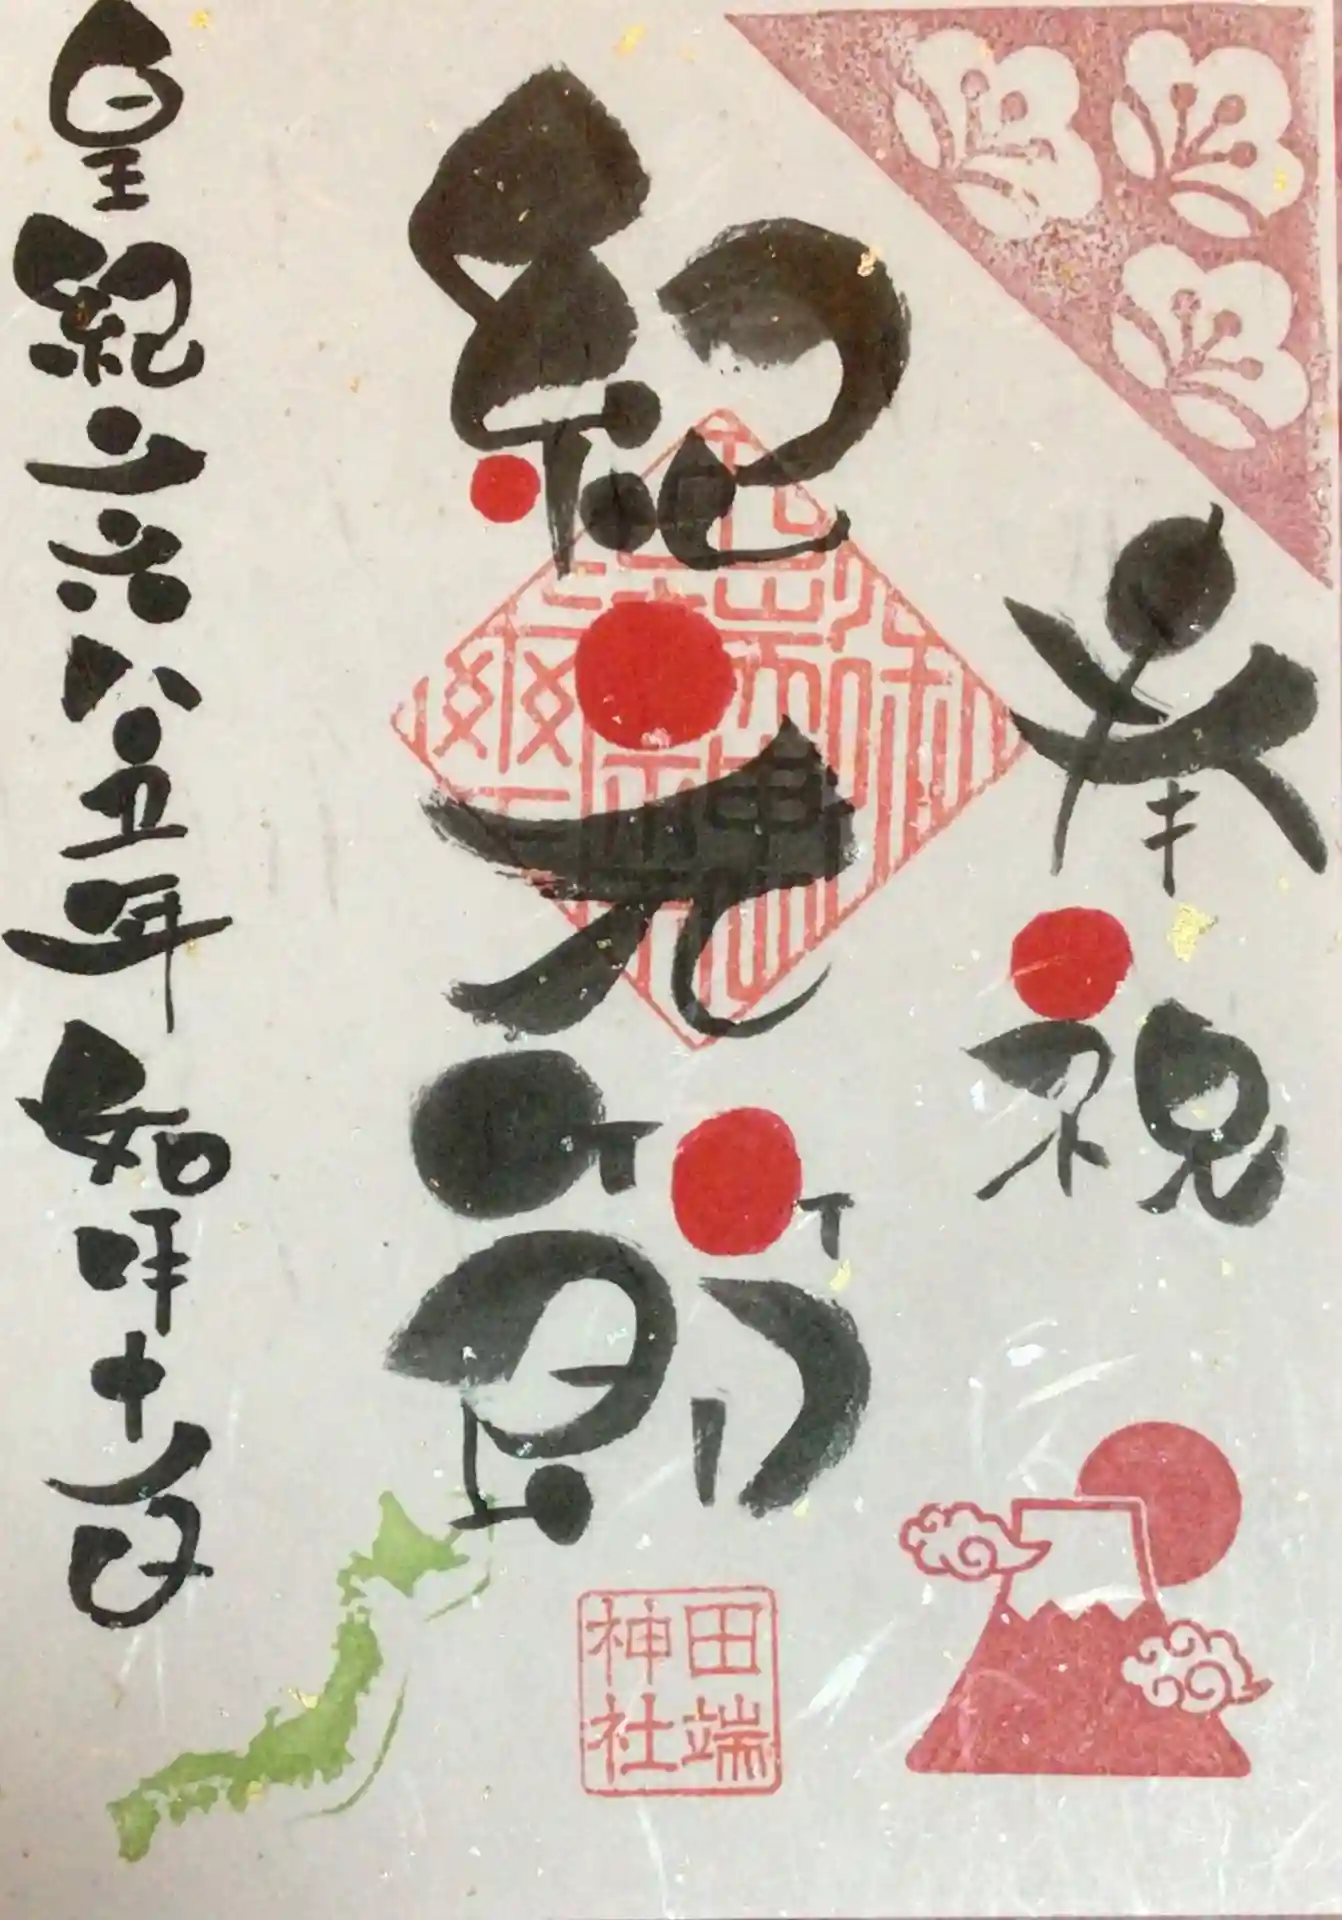 奉祝
紀元節
皇紀二六八五年 如月十一日
田端
神社